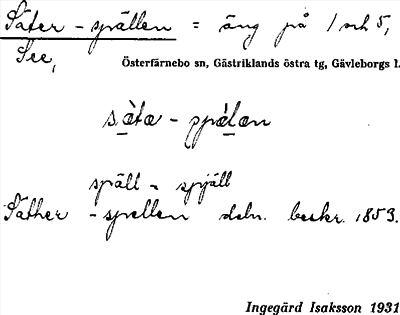 Säter-spällen = äng på 1 och 5,
See,
Österfärnebo sn, Gästriklands östra tg, Gävleborgs l.
späll - spjäll
Säther-spellen deln. beskr. 1853.
Ingegärd Isaksson 1931